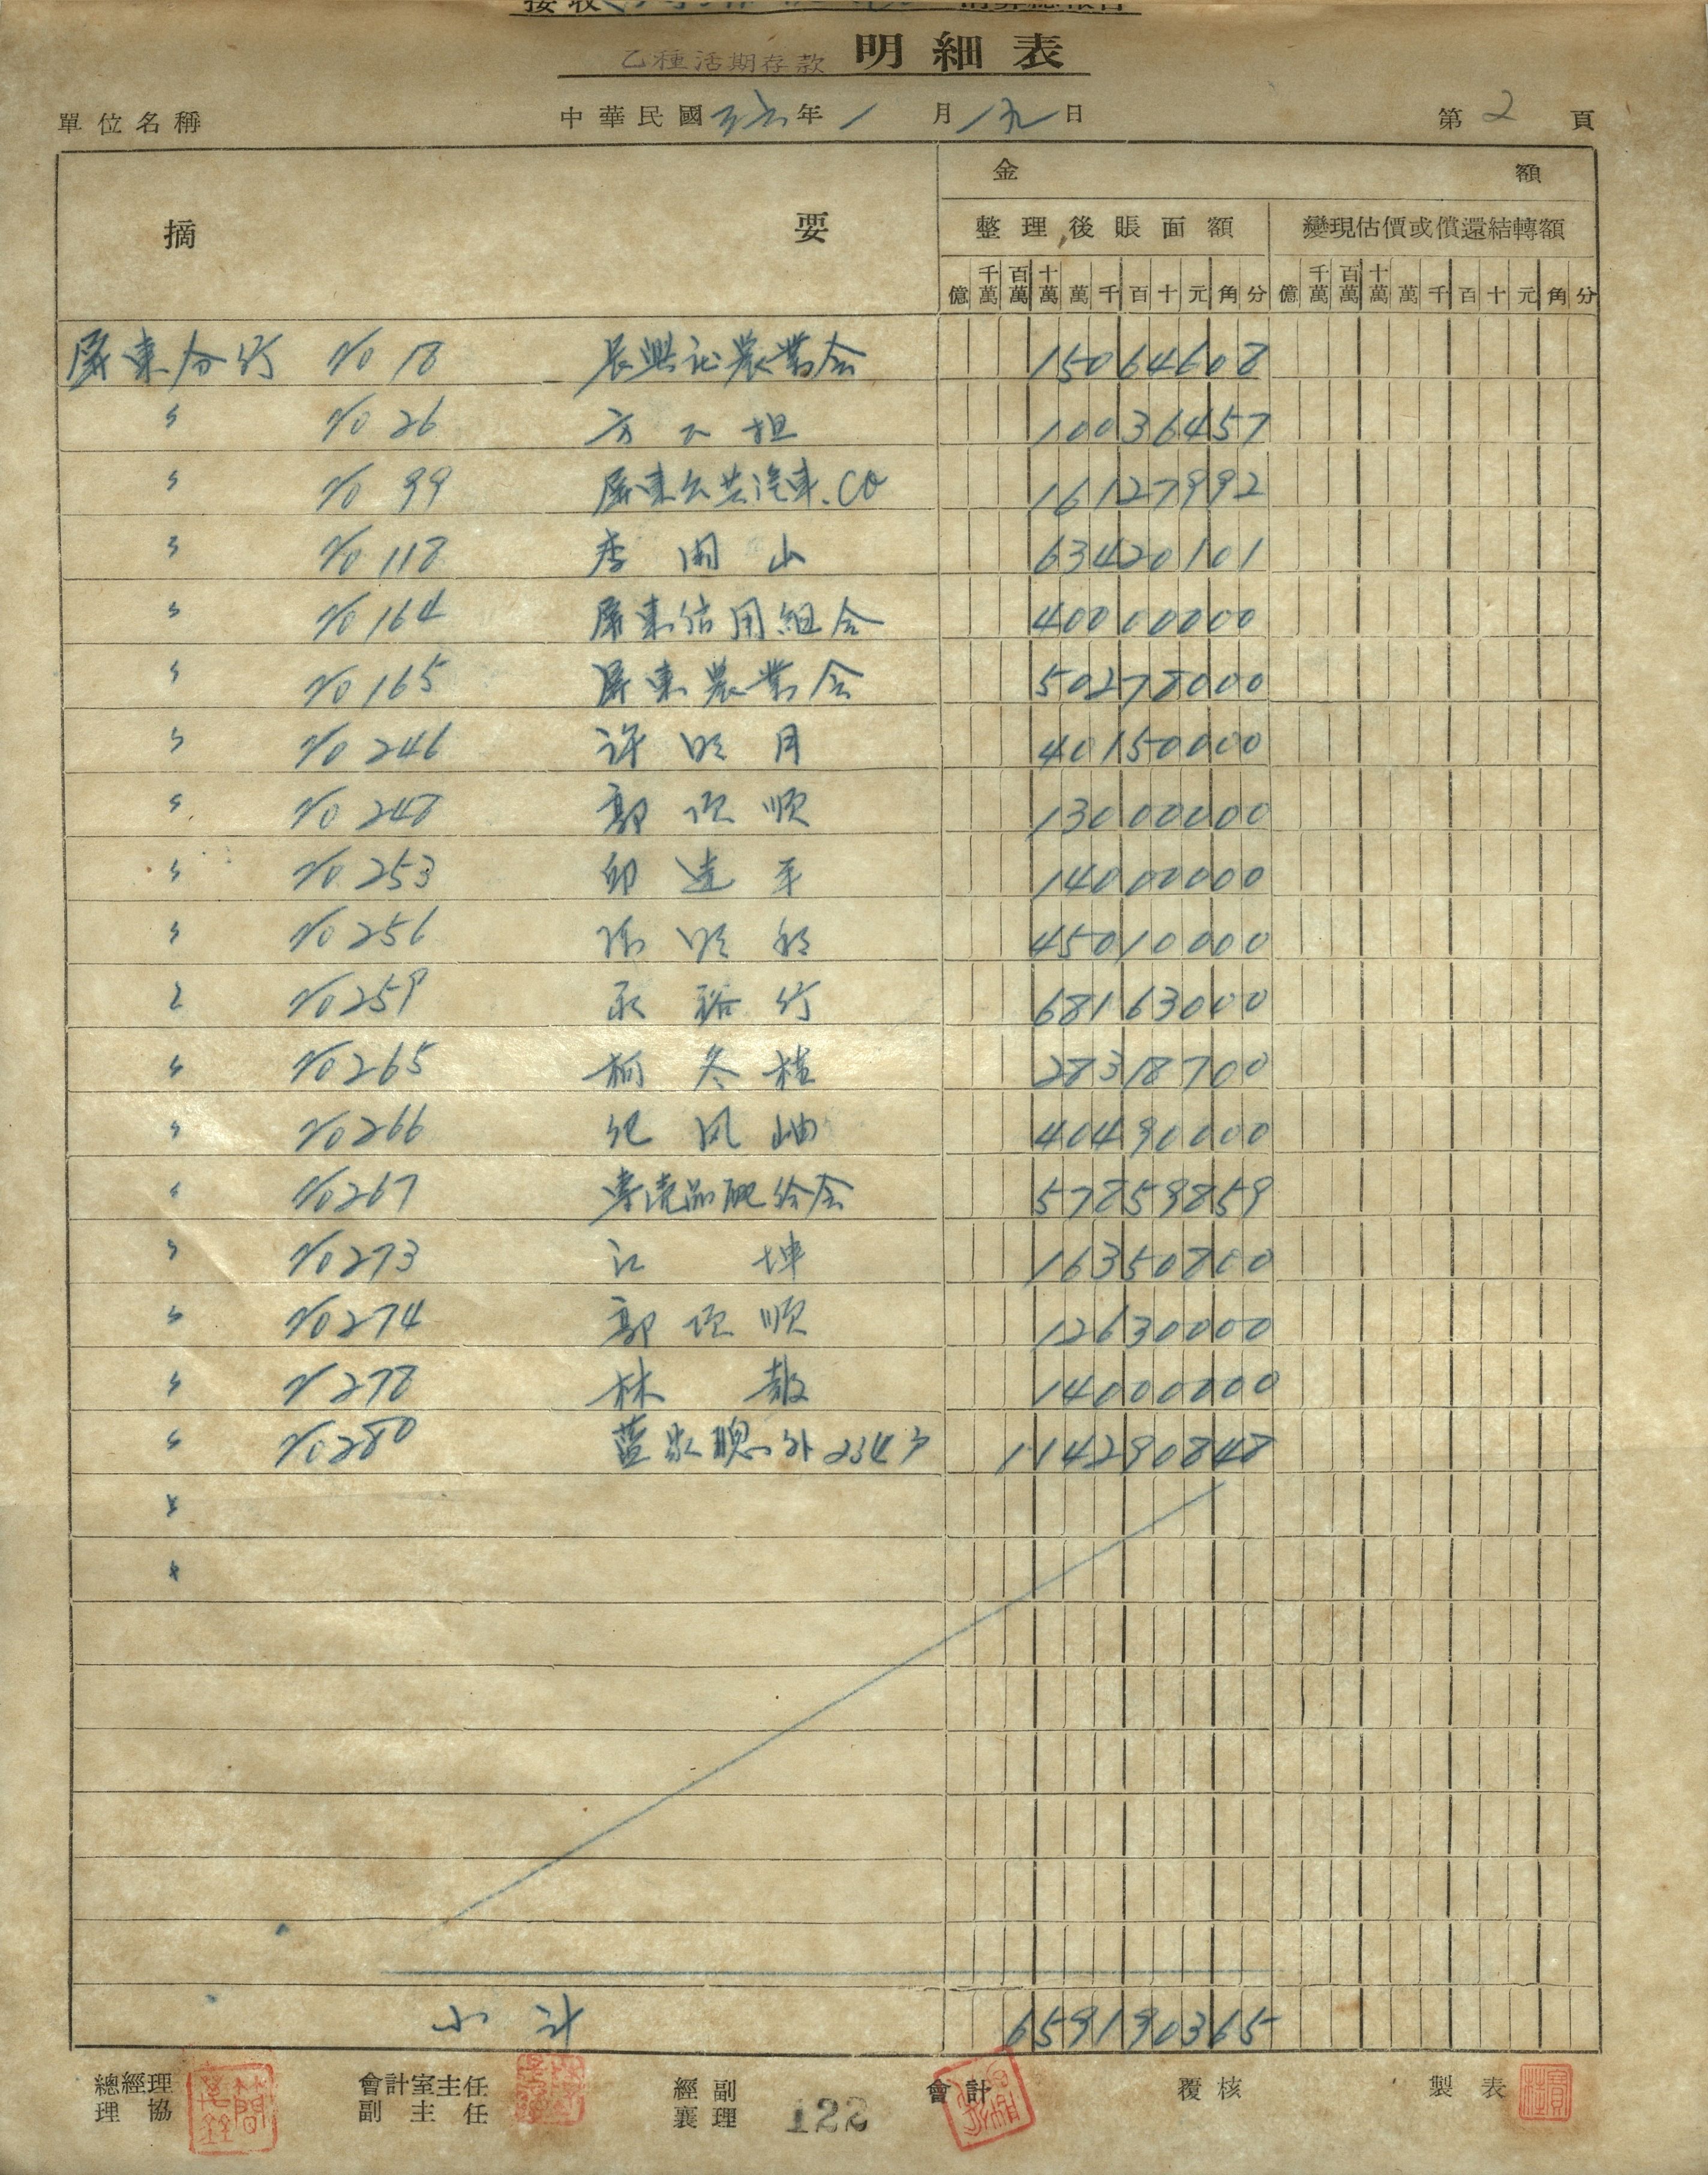 乙種活期存款 明細表
單位名稱 中華民國三六年1月19日 第2頁
金額
摘要 整理後賬面額 變現估價或償還結轉額
億 千萬 百萬 十萬 萬 千 百 十 元 角 分 億 千萬 百萬 十萬 萬 千 百 十 元 角 分
屏東分行 No 18 長興庄農業会 15064608
〃 No 26 10036457
〃 No 99 屏東公共汽車.Co 16127992
〃 No 118 李開山 63420101
〃 No 164 屏東信用組合 40000000
〃 No 165 屏東農業会 50278000
〃 No 246 許明月 40150000
〃 No 248 郭項順 13000000
〃 No 253 邱達平 14000000
〃 No 256 45010000
〃 No 259 永裕行 68163000
〃 No 265 柯冬桂 28318700
〃 No 266 40490000
〃 No 267 專売品配給会 57859859
〃 No 273 江坤 16350800
〃 No 274 郭項順 12630000
〃 N 278 林 14000000
〃 No 280 藍家聰外234户 114290848
〃
〃
小計 659190365
總經理 協理 會計室主任 副主任 經副襄理 會計 覆核 製表
122